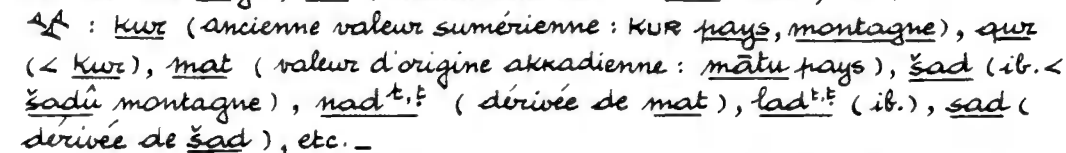 𒆳 : kur (ancienne valeur sumérienne : KUR pays, montagne), qur
(< kur), mat ( valeur d'origine akkadienne : mātu pays ), šad (ib. <
šadû montagne) , nad^t,ṭ ( dérivée de mat ), lad^t,ṭ ( ib.), sad (
dérivée de šad ), etc._